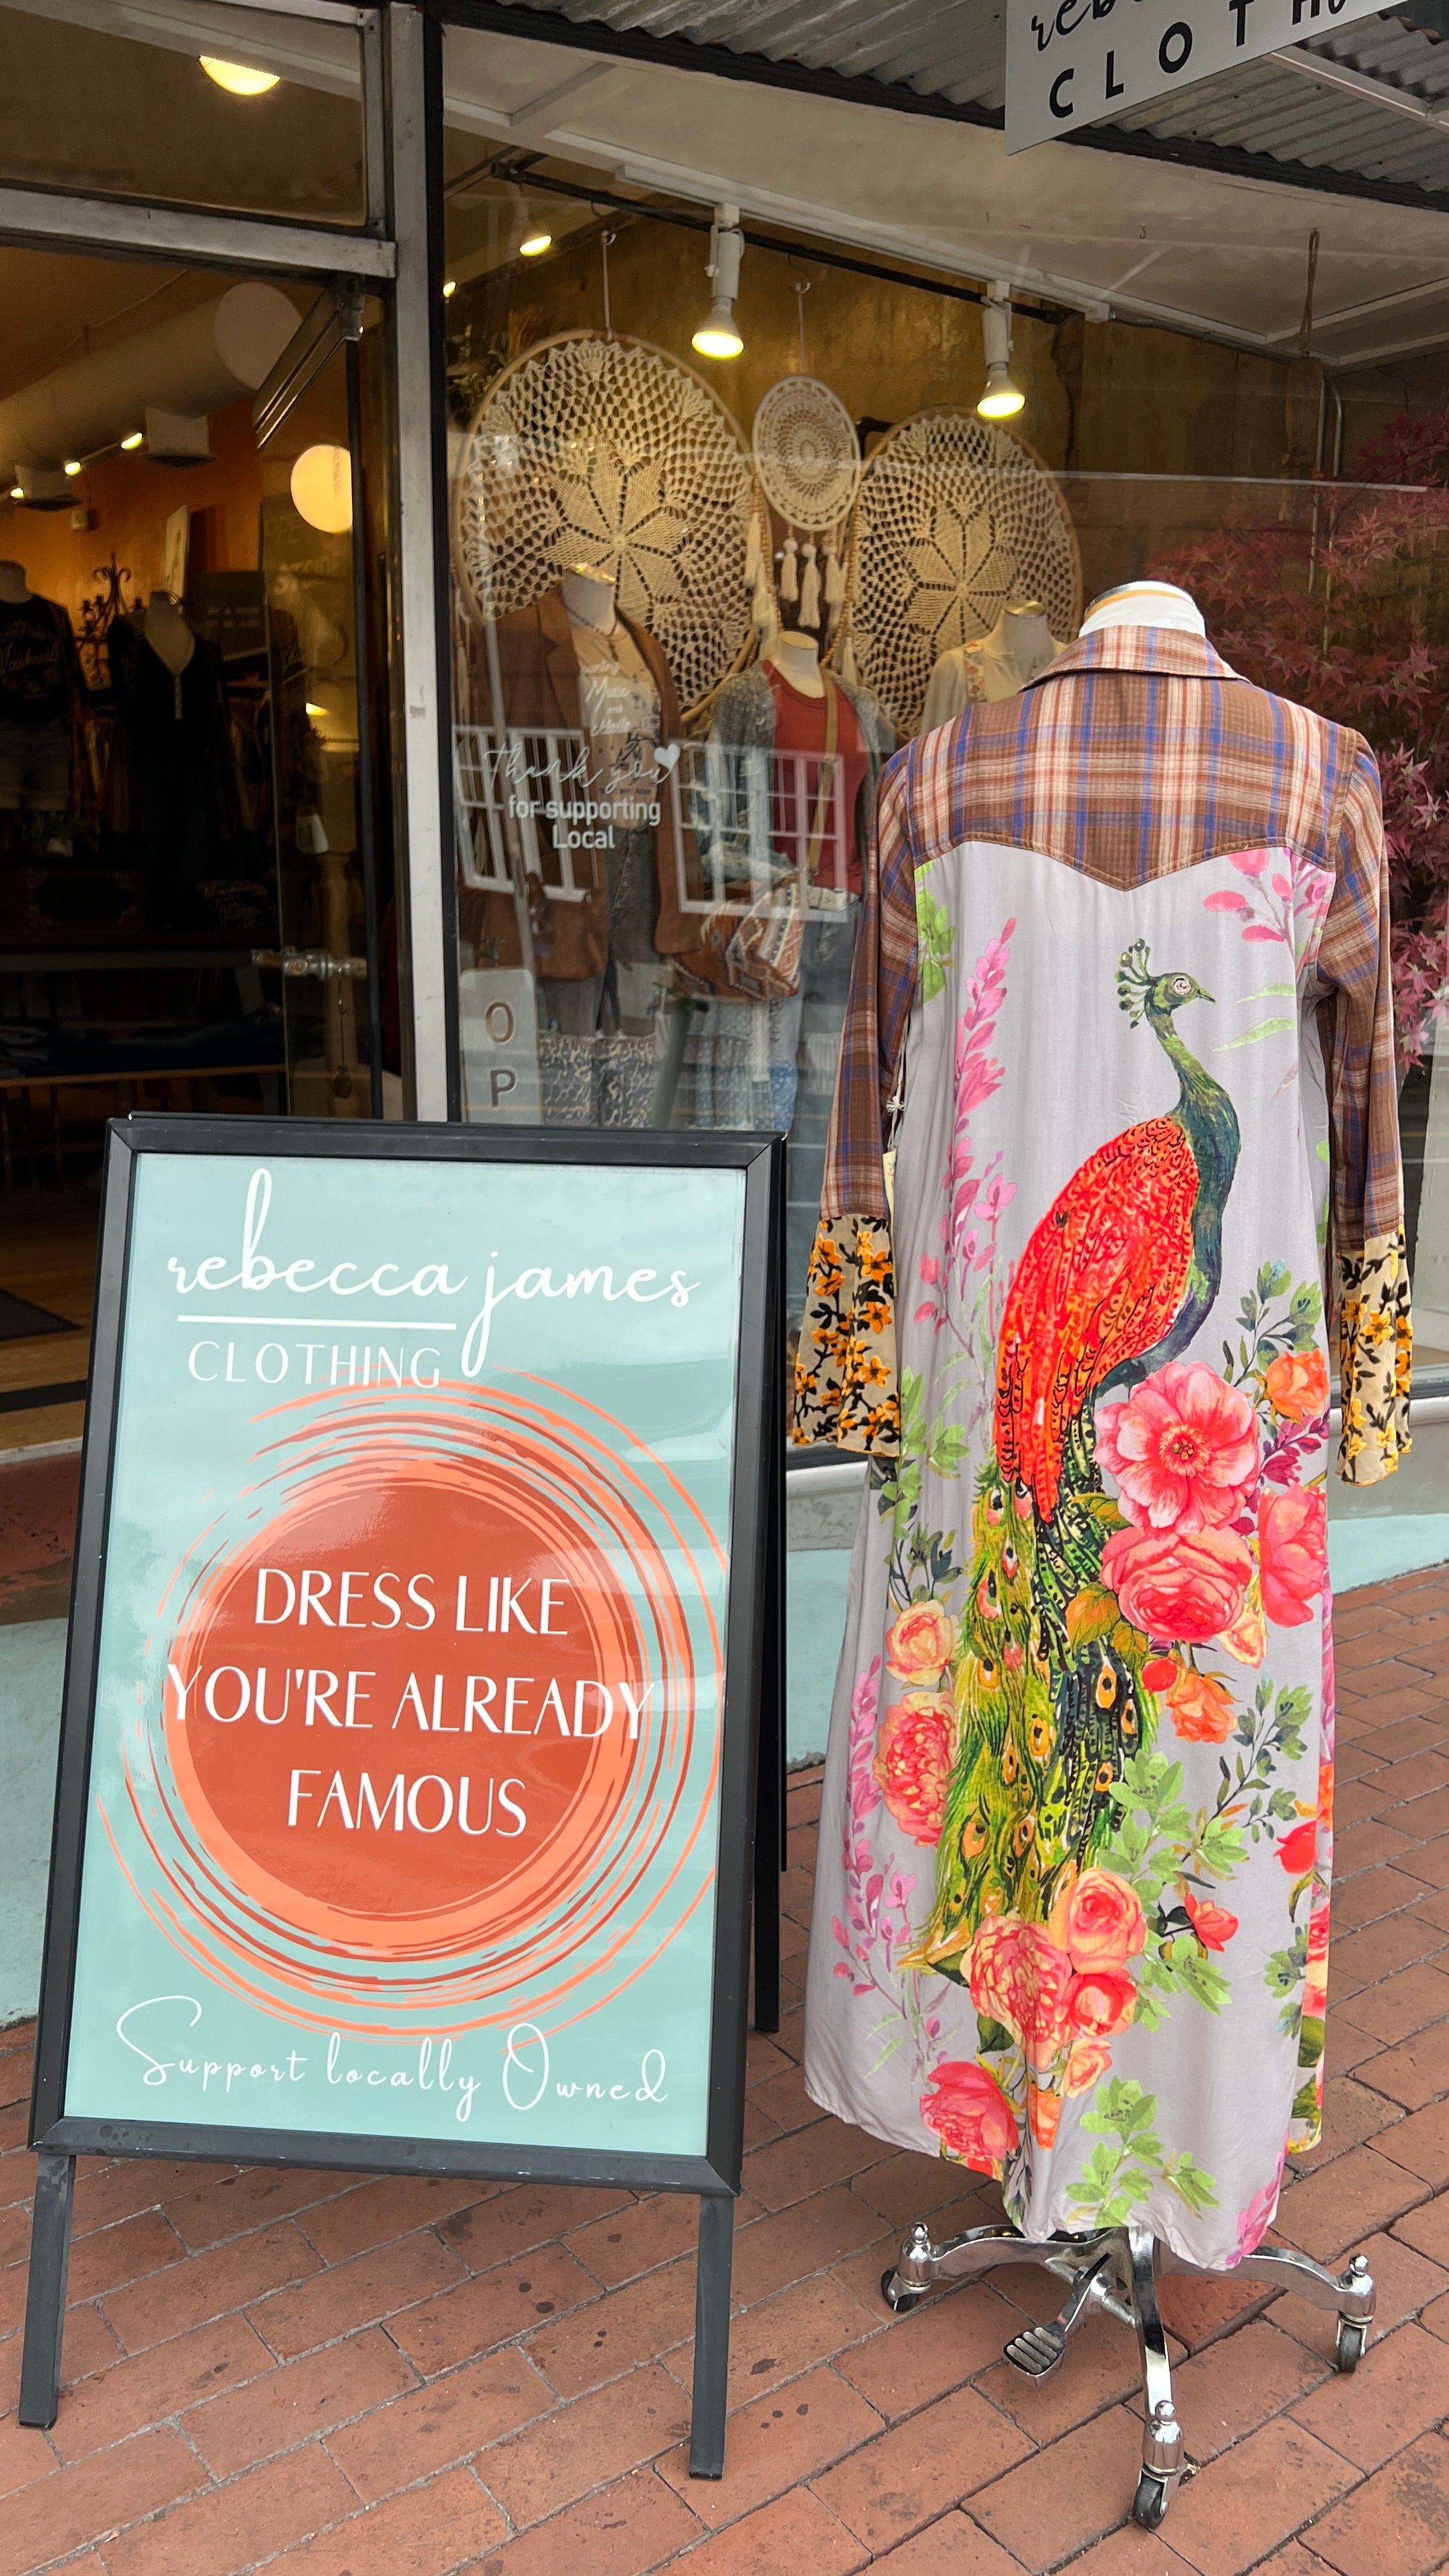 CLOTH
Thank you
for supporting
Local
O
P
rebecca james
CLOTHING
DRESS LIKE
YOU'RE ALREADY
FAMOUS
Support locally Owned